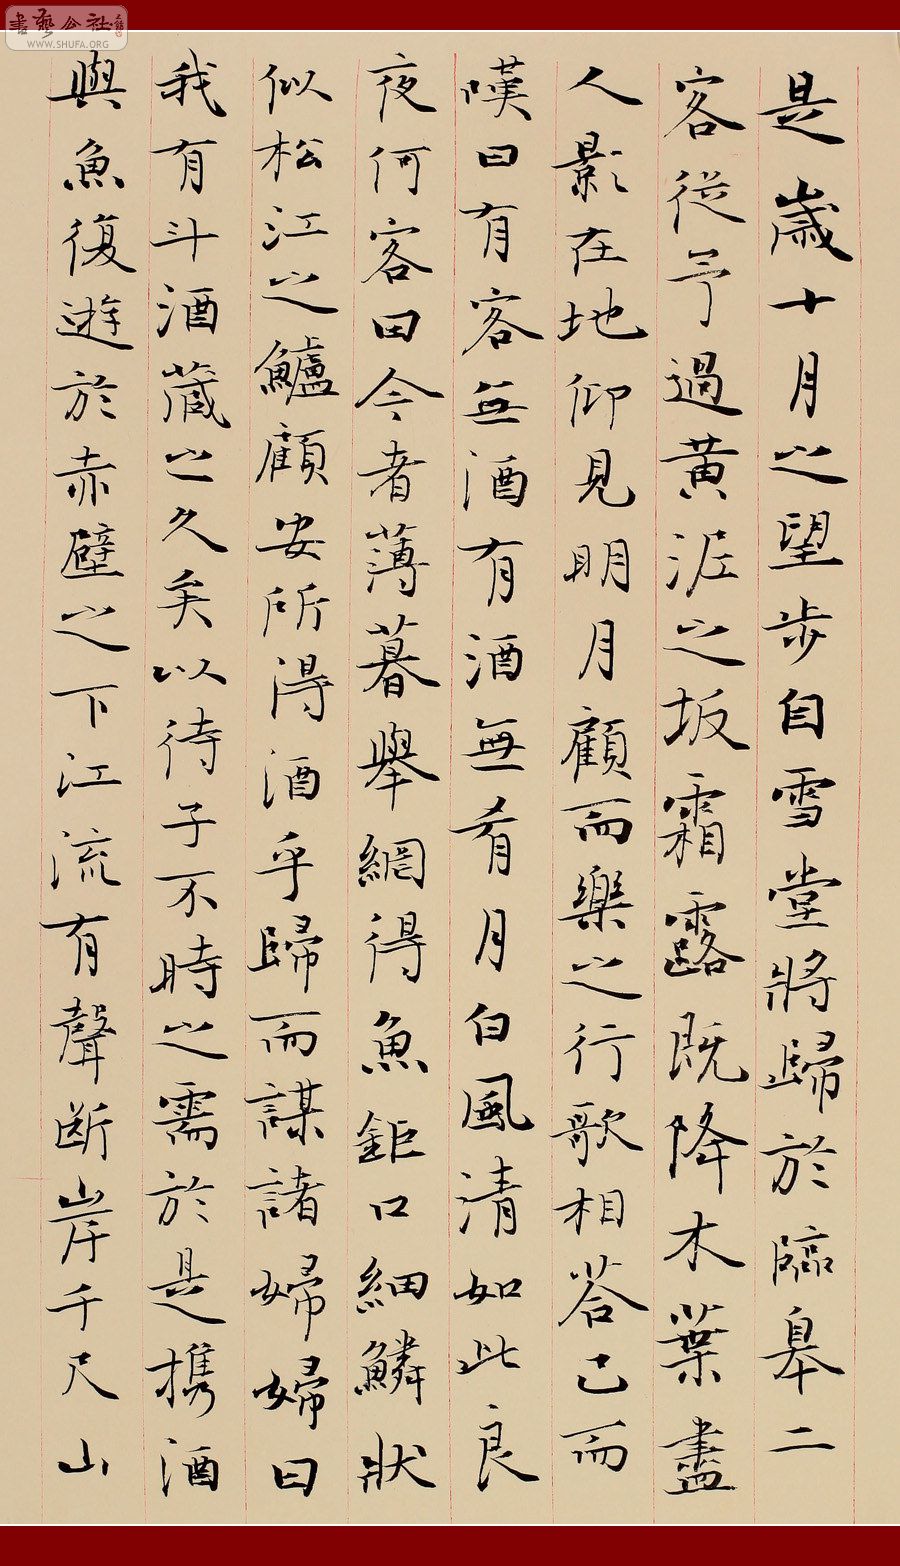 書藝公社
WWW.SHUFA.ORG
是歲十月之望步自雪堂將歸於臨皋二
客從予過黄泥之坂霜露既降木葉盡
人影在地仰見明月顧而樂之行歌相答已而
嘆曰有客無酒有酒無肴月白風清如此良
夜何客曰今者薄暮舉網得魚鉅口細鱗狀
似松江之鱸顧安所得酒乎歸而謀諸婦婦曰
我有斗酒藏之久矣以待子不時之需於是携酒
與魚復遊於赤壁之下江流有聲断岸千尺山